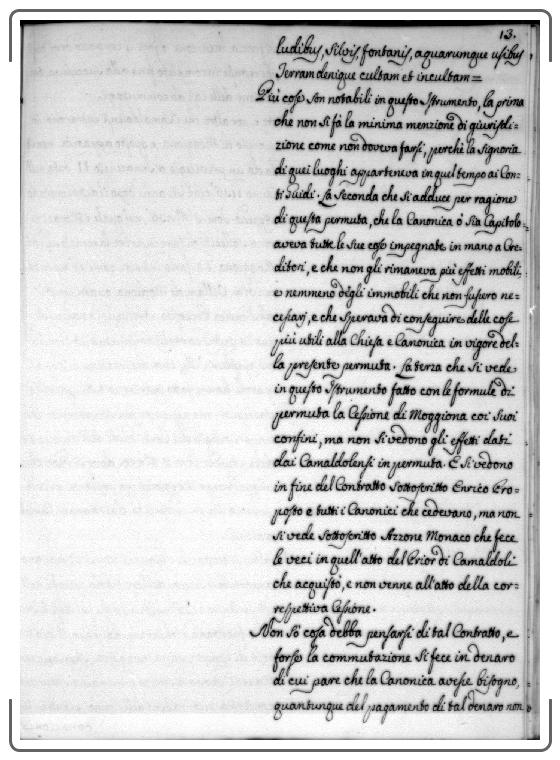 13.
ludibus, Silvis, fontanis, aquarumque usibus
Terram denique cultam et incultam =
Più cose son notabili in questo Istrumento, la prima
che non si fà la minima menzione di giurisdi:
zione come non doveva farsi, perchè la Signoria
di quei luoghi apparteneva in quel tempo ai Con:
ti Guidi. La Seconda che si adduce per ragione
di questa permuta, che la Canonica ò sia Capitolo
aveva tutte le sue cose impegnate in mano a Cre:
ditori, e che non gli rimaneva più effetti mobili,
e nemmeno degli immobili che non fussero ne:
cessarj, e che sperava di conseguire delle cose
più utili alla Chiesa e Canonica in vigore del:
la presente permuta. La terza che si vede
in questo Istrumento fatto con le formule di
permuta la Cessione di Moggiona coi suoi
confini, ma non si vedono gli effetti dati
dai Camaldolensi in permuta. E si vedono
in fine del Contratto Sottoscritto Enrico Pro:
posto e tutti i Canonici che cedevano, ma non
si vede Sottoscritto Azzone Monaco che fece
le veci in quell'atto del Prior di Camaldoli
che acquistò, e non venne all'atto della cor:
respettiva Cessione.
Non sò cosa debba pensarsi di tal Contratto, e
forse la commutazione si fece in denaro
di cui pare che la Canonica avesse bisogno,
quantunque del pagamento di tal denaro non